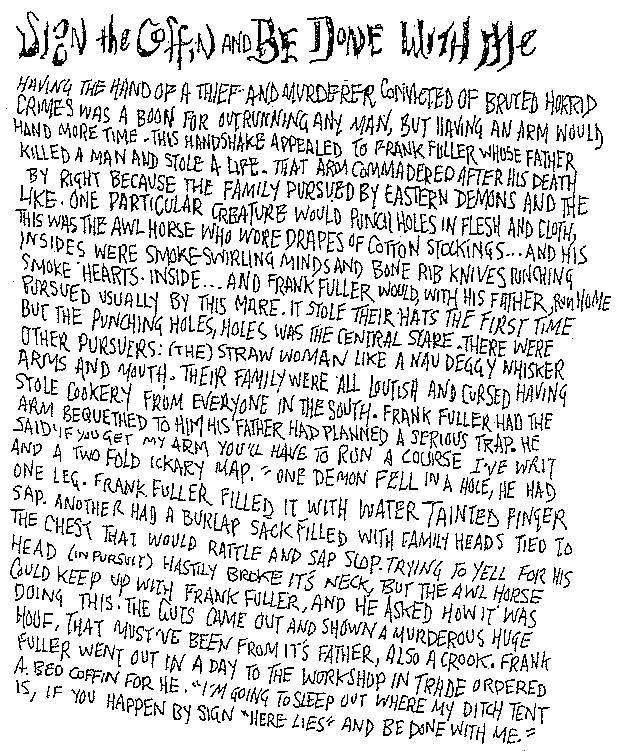 Sign the Coffin AND BE DONE WITH Me
HAVING THE HAND OF A THIEF AND MURDERER CONVICTED OF BRUTED HORRID
CRIMES WAS A BOON FOR OUTRUNNING ANY MAN, BUT HAVING AN ARM WOULD
HAND MORE TIME. THIS HANDSHAKE APPEALED TO FRANK FULLER WHOSE FATHER
KILLED A MAN AND STOLE A LIFE. THAT ARM COMMADERED AFTER HIS DEATH
BY RIGHT BECAUSE THE FAMILY PURSUED BY EASTERN DEMONS AND THE
LIKE. ONE PARTICULAR CREATURE WOULD PUNCH HOLES IN FLESH AND CLOTH,
THIS WAS THE AWL HORSE WHO WORE DRAPES OF COTTON STOCKINGS... AND HIS
INSIDES WERE SMOKE-SWIRLING MINDS AND BONE RIB KNIVES PUNCHING
SMOKE HEARTS. INSIDE... AND FRANK FULLER WOULD, WITH HIS FATHER, RUN HOME
PURSUED USUALLY BY THIS MARE. IT STOLE THEIR HATS THE FIRST TIME
BUT THE PUNCHING HOLES, HOLES WAS THE CENTRAL SCARE. THERE WERE
OTHER PURSUERS: (THE) STRAW WOMAN LIKE A WHISKER
ARMS AND MOUTH. THEIR FAMILY WERE ALL LOUTISH AND CURSED HAVING
STOLE COOKERY FROM EVERYONE IN THE SOUTH. FRANK FULLER HAD THE
ARM BEQUETHED TO HIM HIS FATHER HAD PLANNED A SERIOUS TRAP. HE
SAID "IF YOU GET MY ARM YOU'LL HAVE TO RUN A COURSE I'VE WRIT
AND A TWO FOLD ICKARY MAP." ONE DEMON FELL IN A HOLE, HE HAD
ONE LEG. FRANK FULLER FILLED IT WITH WATER TAINTED FINGER
SAP. ANOTHER HAD A BURLAP SACK FILLED WITH FAMILY HEADS TIED TO
THE CHEST THAT WOULD RATTLE AND SAP SLOP. TRYING TO YELL FOR HIS
HEAD (IN PURSUIT) HASTILY BROKE IT'S NECK, BUT THE AWL HORSE
COULD KEEP UP WITH FRANK FULLER, AND HE ASKED HOW IT WAS
DOING THIS. THE GUTS CAME OUT AND SHOWN A MURDEROUS HUGE
HOOF. THAT MUST'VE BEEN FROM IT'S FATHER, ALSO A CROOK. FRANK
FULLER WENT OUT IN A DAY TO THE WORKSHOP IN TRADE ORDERED
A BED COFFIN FOR HE. "I'M GOING TO SLEEP OUT WHERE MY DITCH TENT
IS, IF YOU HAPPEN BY SIGN "HERE LIES" AND BE DONE WITH ME."